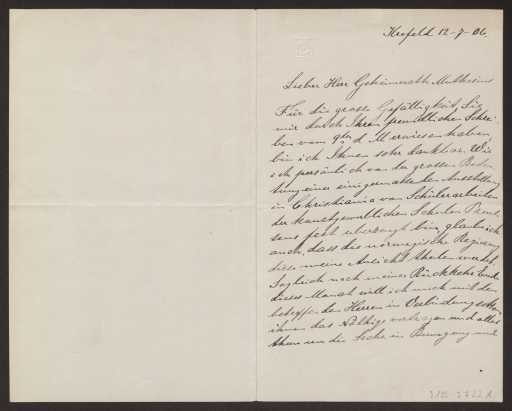 Krefeld 12-7-06.
Lieber Herr Geheimrath Muthesius
Für die grosse Gefälligkeit, die Sie
mir durch Ihren freundlichen Schrei-
ben vom 9ten d. M. erwiesen haben,
bin ich Ihnen sehr dankbar. Wie
ich persönlich von der grossen Bedeu-
tung einer
in Christiania von Schülerarbeiten
der kunstgewerblichen Schulen Preus-
sens fest überzeugt bin, glaube ich
auch, dass die norwegische Regierung
diese meine Ansicht theilen wird.
Sogleich nach meiner Rückkehr Ende
dieses Monats will ich mich mit den
betreffenden Herren in Verbindung setzen,
ihnen das Nöthige vorlegen und alles
thun um die Sache in Bewegung und